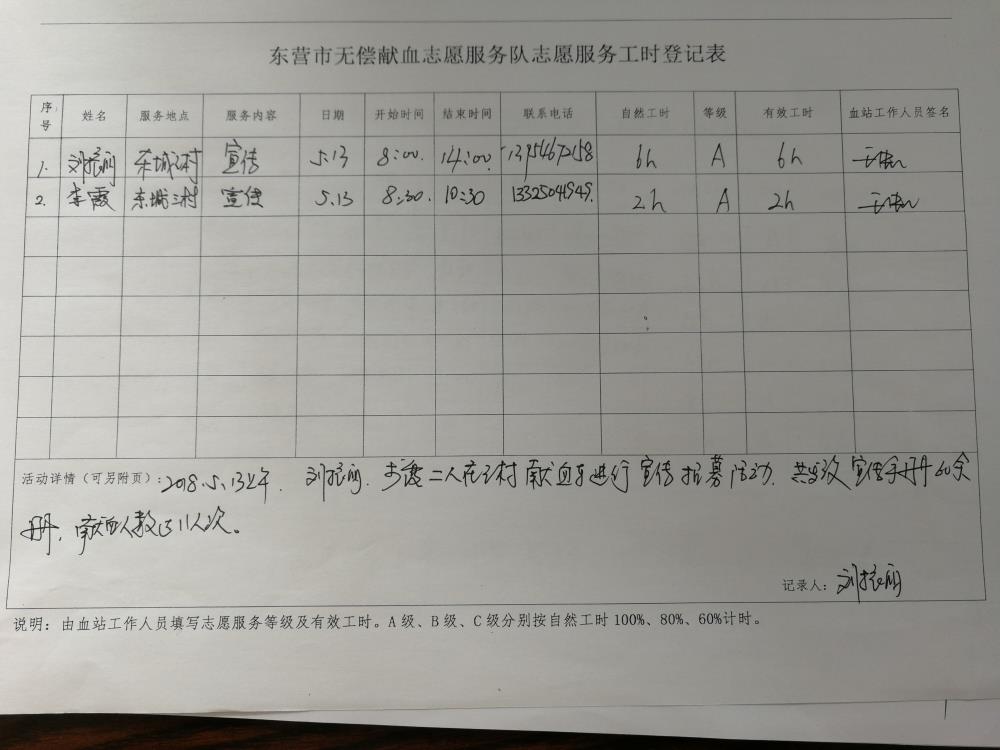 东营市无偿献血志愿服务队志愿服务工时登记表
序号 姓名 服务地点 服务内容 日期 开始时间 结束时间 联系电话 自然工时 等级 有效工时 血站工作人员签名
1. 刘振丽 东城王村 宣传 5.13 8:00. 14:00. 13954672158 6h A 6h
2. 李霞 东城王村 宣传 5.13 8:30. 10:30 13325041949. 2h A 2h
活动详情(可另附页): 2018.5.13上午. 刘振丽. 李霞二人在王村献血车进行宣传招募活动. 共发放宣传手册60余
册, 献血人数11人次。
记录人: 刘振丽
说明: 由血站工作人员填写志愿服务等级及有效工时。A级、B级、C级分别按自然工时100%、80%、60%计时。